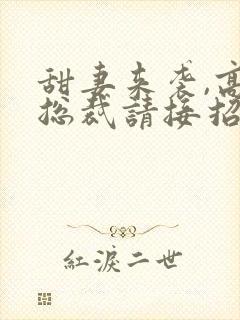 甜妻来袭,高
总裁請接招
紅淚二世